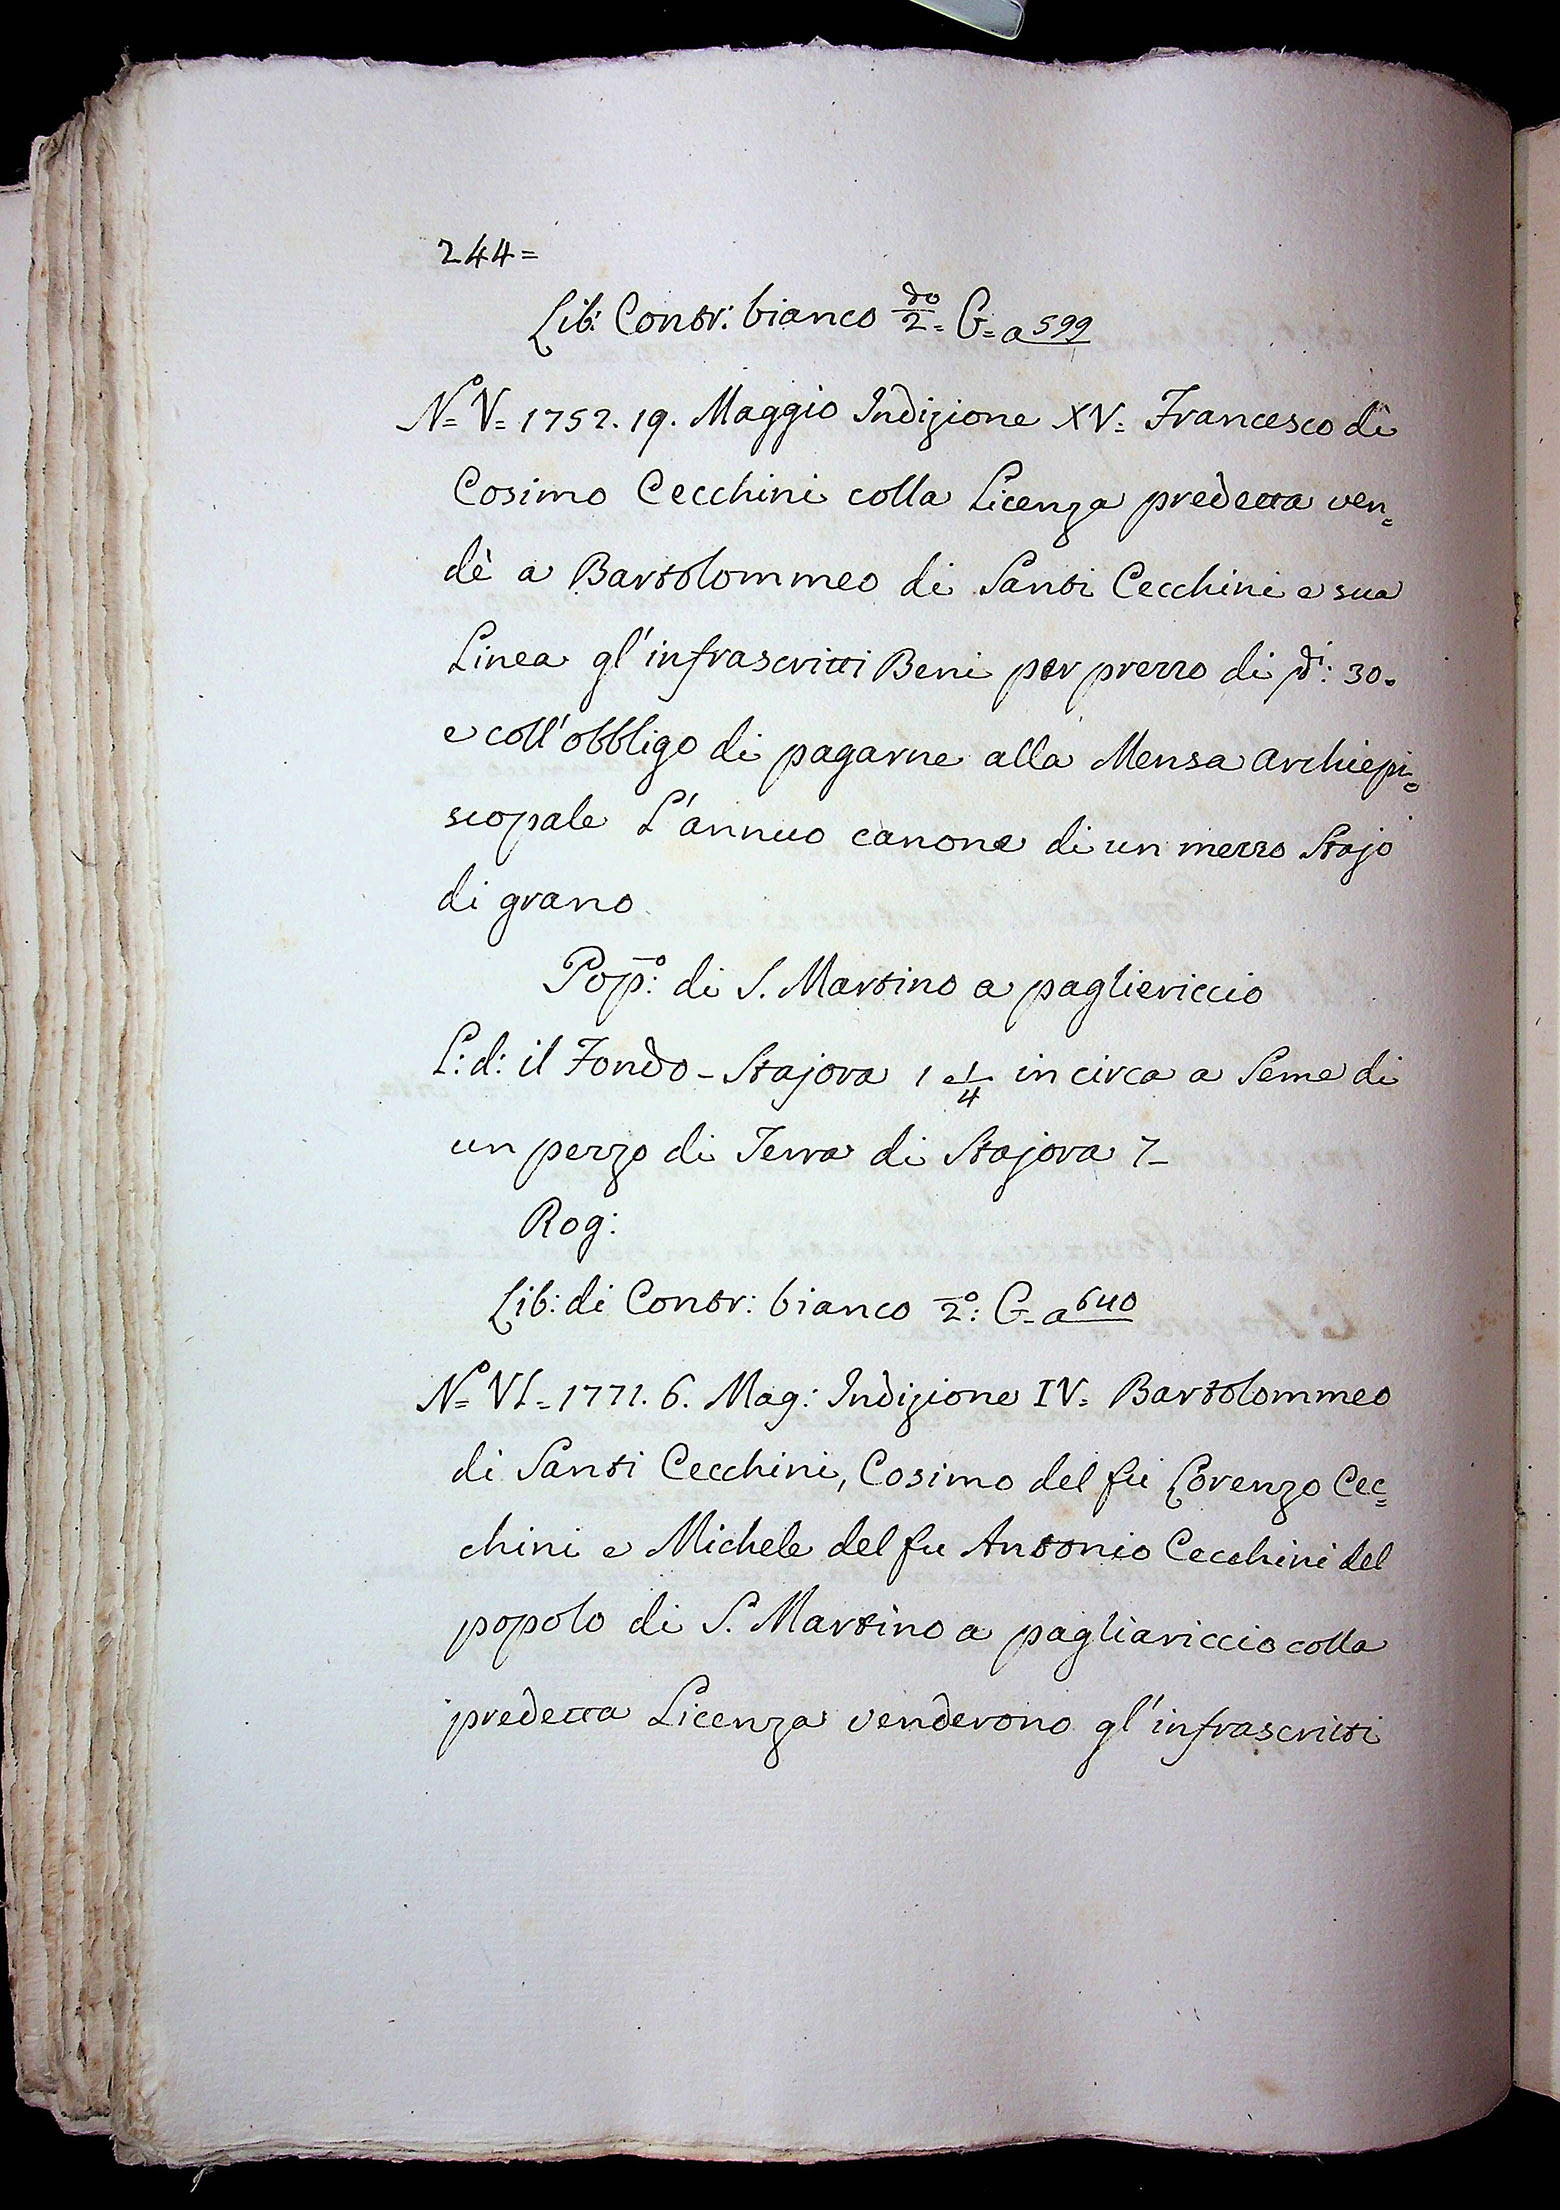 244=
Lib: Contr: bianco 2.do G= a 599
N.o V= 1752. 19. Maggio Indizione XV= Francesco di
Cosimo Cecchini colla Licenza predetta ven=
dè a Bartolommeo di Santi Cecchini e sua
Linea gl'infrascritti Beni per prezzo di di: 30.
e coll'obbligo di pagarne alla Mensa Archiepi=
scopale L'annuo canone di un mezzo Stajo
di grano
Pop:o di S. Martino a pagliericcio
L: d: il Fondo - Stajora 1 e 1/4 in circa a Seme di
un pezzo di Terra di Stajora 7-
Rog:
Lib: di Contr: bianco 2:o G- a 640
N.o VI= 1771. 6. Mag: Indizione IV= Bartolommeo
di Santi Cecchini, Cosimo del fù Lorenzo Cec=
chini e Michele del fu Antonio Cecchini del
popolo di S. Martino a pagliariccio colla
predetta Licenza venderono gl'infrascritti